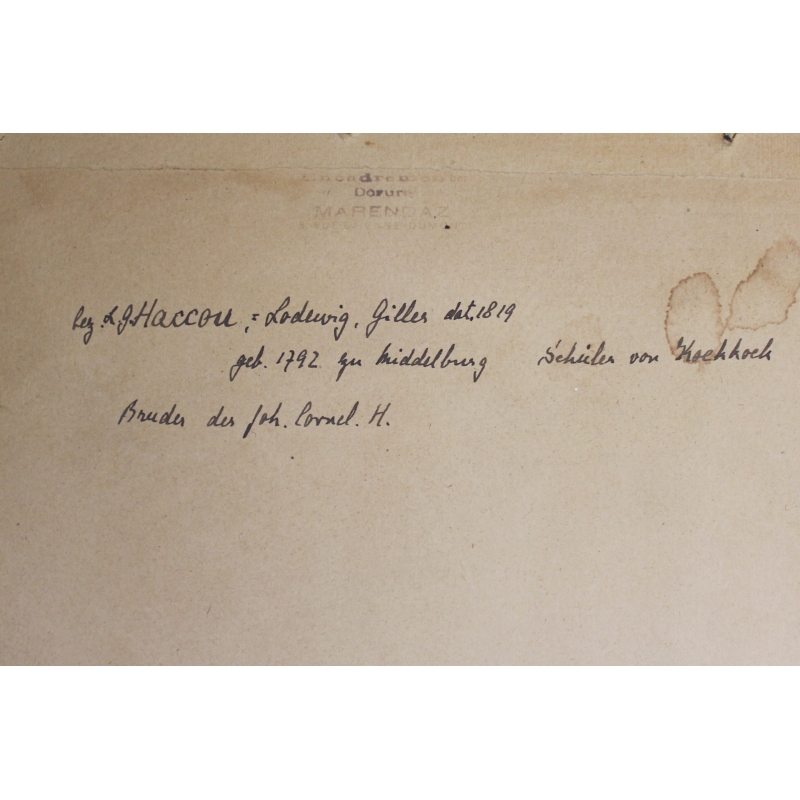 Encadrements
Dorure
MARENDAZ
bez. L.G. Haccou, = Lodewig, Gilles dat. 1819
geb. 1792 zu Middelburg Schüler von Koekkoek
Bruder des Joh. Cornel. H.